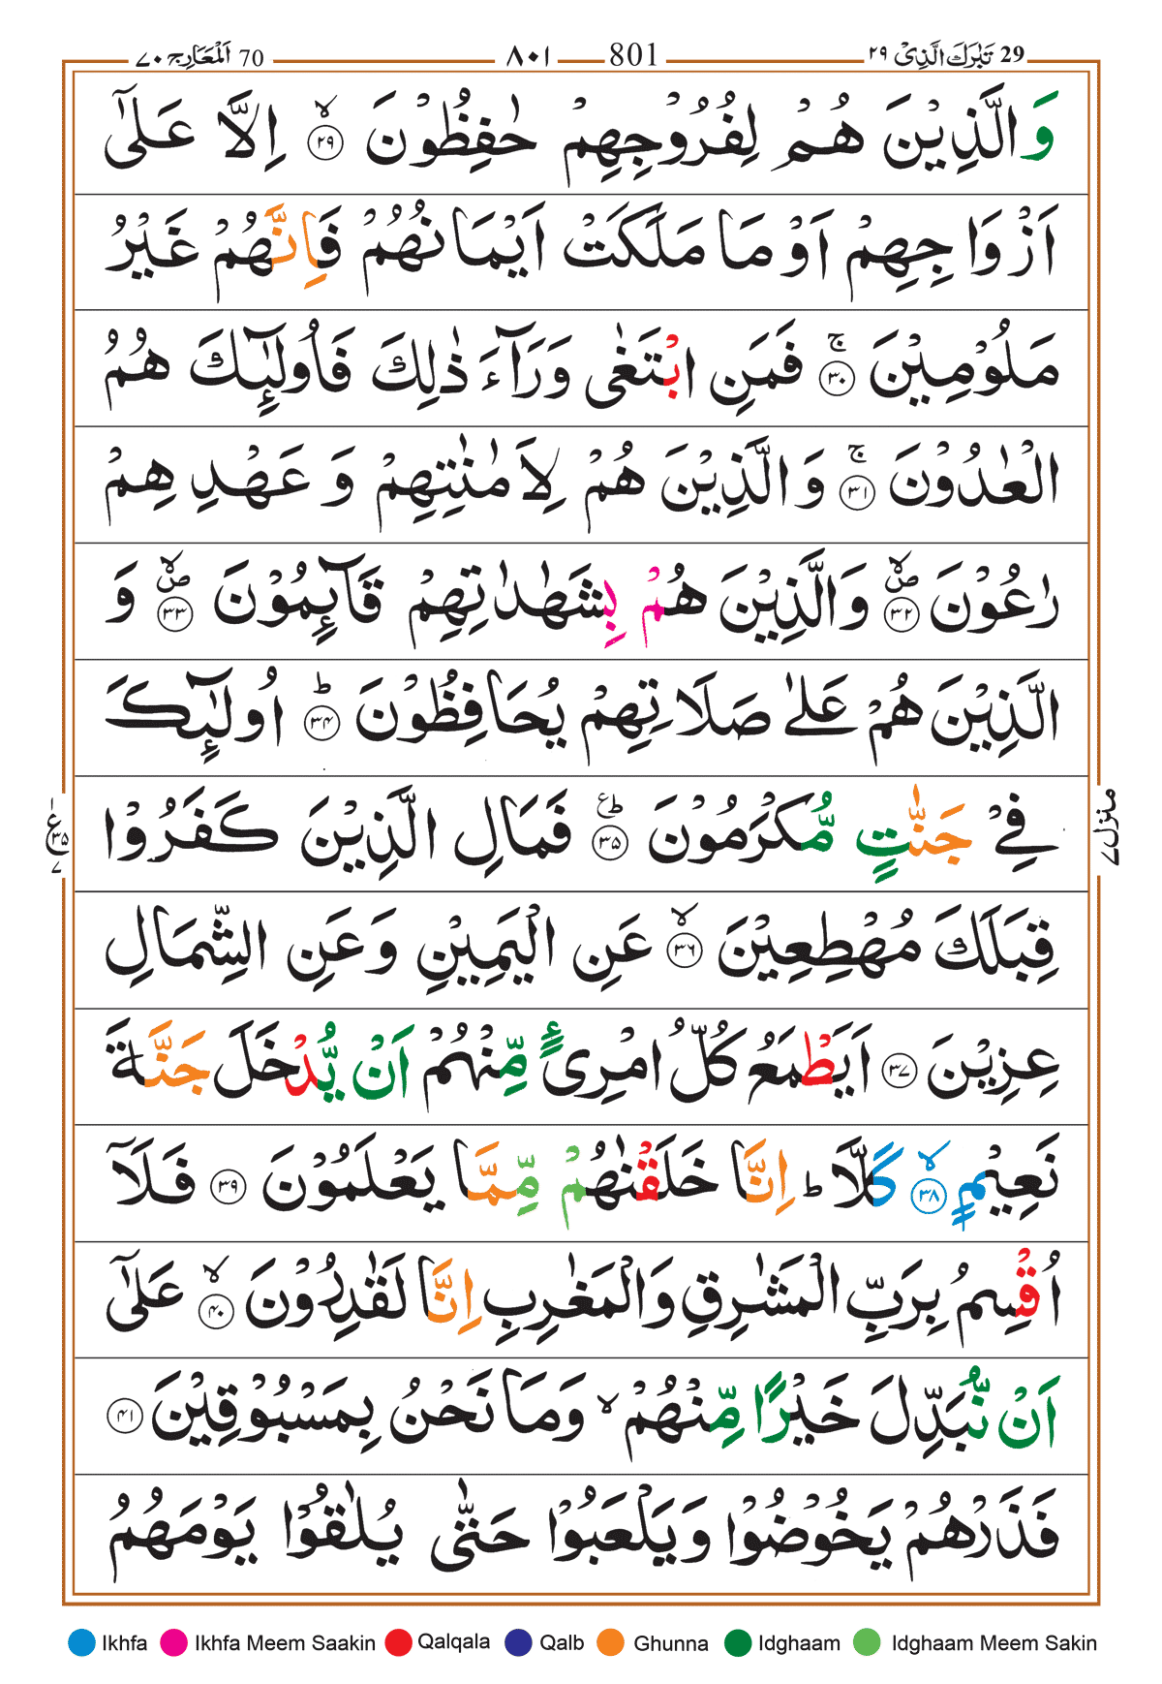 29 تَبٰرَكَ الَّذِیْ ۲۹ 801 ۸۰۱ 70 اَلْمَعَارِج ۷۰
وَالَّذِیْنَ هُمْ لِفُرُوْجِهِمْ حٰفِظُوْنَ ۙ﴿۲۹﴾ اِلَّا عَلٰۤی
اَزْوَاجِهِمْ اَوْ مَا مَلَكَتْ اَیْمَانُهُمْ فَاِنَّهُمْ غَیْرُ
مَلُوْمِیْنَ ۚ﴿۳۰﴾ فَمَنِ ابْتَغٰی وَرَآءَ ذٰلِكَ فَاُولٰٓئِكَ هُمُ
الْعٰدُوْنَ ۚ﴿۳۱﴾ وَالَّذِیْنَ هُمْ لِاَمٰنٰتِهِمْ وَ عَهْدِهِمْ
رٰعُوْنَ ۪ۙ﴿۳۲﴾ وَالَّذِیْنَ هُمْ بِشَهٰدٰتِهِمْ قَآئِمُوْنَ ۪ۙ﴿۳۳﴾ وَ
الَّذِیْنَ هُمْ عَلٰی صَلَاتِهِمْ یُحَافِظُوْنَ ؕ﴿۳۴﴾ اُولٰٓئِكَ
فِیْ جَنّٰتٍ مُّكْرَمُوْنَ ؕ۠﴿۳۵﴾ فَمَالِ الَّذِیْنَ كَفَرُوْا
قِبَلَكَ مُهْطِعِیْنَ ۙ﴿۳۶﴾ عَنِ الْیَمِیْنِ وَعَنِ الشِّمَالِ
عِزِیْنَ ﴿۳۷﴾ اَیَطْمَعُ كُلُّ امْرِئٍ مِّنْهُمْ اَنْ یُّدْخَلَ جَنَّةَ
نَعِیْمٍ ۙ﴿۳۸﴾ كَلَّا ؕ اِنَّا خَلَقْنٰهُمْ مِّمَّا یَعْلَمُوْنَ ﴿۳۹﴾ فَلَاۤ
اُقْسِمُ بِرَبِّ الْمَشٰرِقِ وَالْمَغٰرِبِ اِنَّا لَقٰدِرُوْنَ ۙ﴿۴۰﴾ عَلٰۤی
اَنْ نُّبَدِّلَ خَیْرًا مِّنْهُمْ ۙ وَمَا نَحْنُ بِمَسْبُوْقِیْنَ ﴿۴۱﴾
فَذَرْهُمْ یَخُوْضُوْا وَیَلْعَبُوْا حَتّٰی یُلٰقُوْا یَوْمَهُمُ
منزل ۷
ع ۳۵ ۷
Ikhfa Ikhfa Meem Saakin Qalqala Qalb Ghunna Idghaam Idghaam Meem Sakin